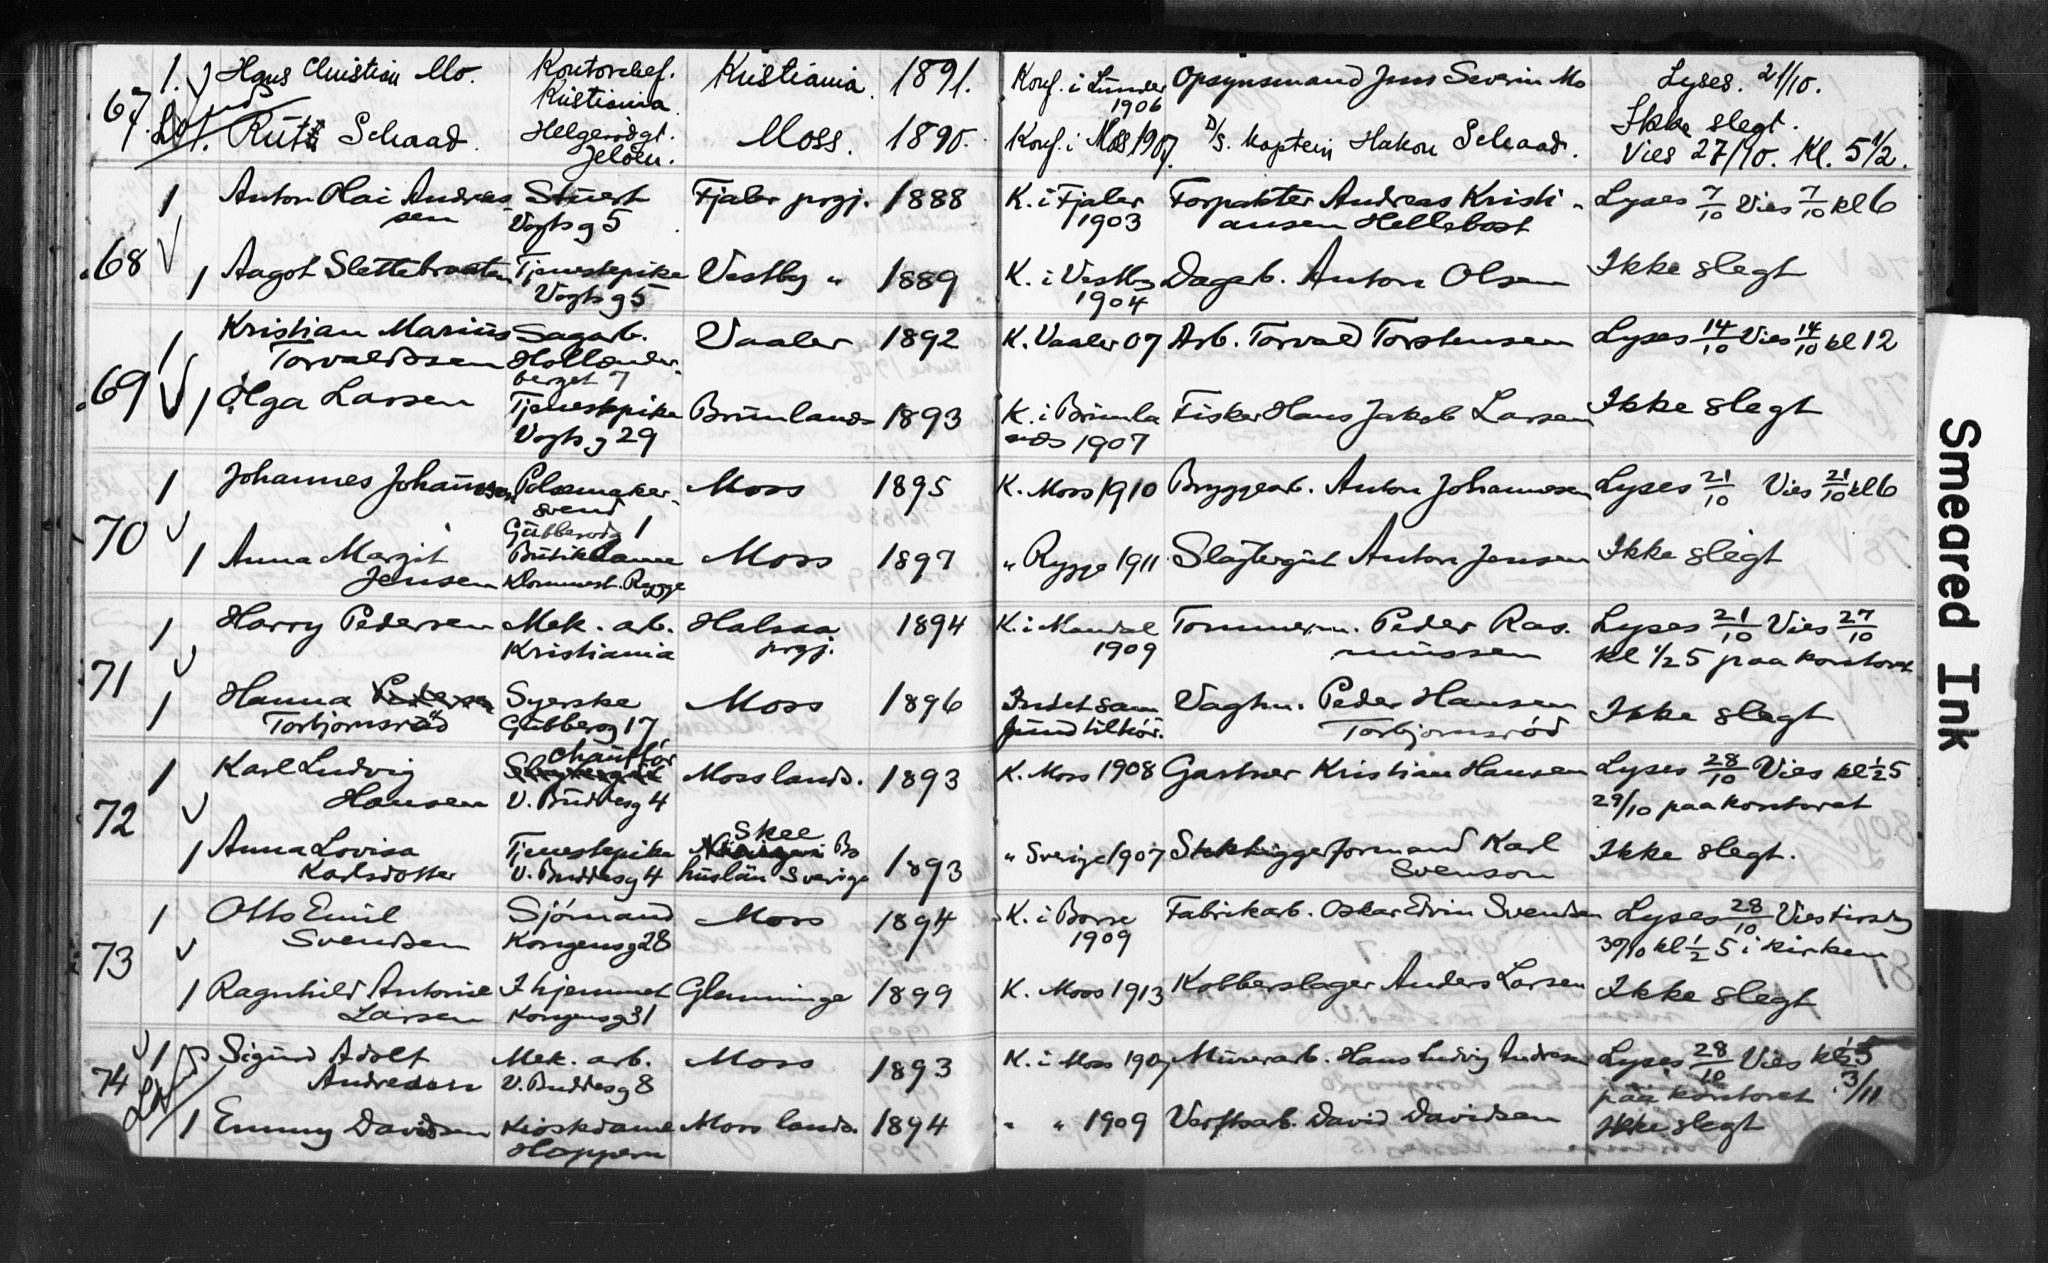 67. 1. Hans Christian Mo. Kontorchef. Kristiania. Kristiania. 1891. Konf. i Lunder 1906 Opsynsmand Jens Severin Mo Lyses. 21/10.
1. Rut Schaad. Helgerødgt. Jeløen. Moss. 1890. Konf. i Moss 1907. D/S. Kaptein Hakon Schaad. Ikke slegt. Vies 27/10. Kl. 5 1/2.
68 1 Anton Olai Andreassen Stuert Vogtsg 5 Fjaler prgj. 1888 K. i Fjaler 1903 Forpakter Andreas Kristiansen Hellebost Lyses 7/10 Vies 7/10 kl 6
1 Aagot Slettebraaten Tjenestepike Vogtsg 5 Vestby " 1889 K. i Vestby 1904 Dagarb. Anton Olsen Ikke slegt
69 1 Kristian Marius Torvaldsen Sagarb. Hollenderberget 7 Vaaler 1892 K. Vaaler 07 Arb. Torvald Torstensen Lyses 14/10 Vies 14/10 kl 12
1 Olga Larsen Tjenestepike Vogtsg 29 Brunlands 1893 K. i Brunlands 1907 Fisker Hans Jakob Larsen Ikke slegt
70 1 Johannes Johannesen Polsemaker-svend Gubberogg 1 Moss 1895 K. Moss 1910 Bryggearb. Anton Johannesen Lyses 21/10 Vies 21/10 kl 6
1 Anna Margit Jensen Butikdame Rygge Moss 1897 " Rygge 1911 Anton Jensen Ikke slegt
71 1 Harry Pedersen Mek. arb. Kristiania Halsaa prgj. 1894 K. i Mandal 1909 Tommerm. Peder Rasmussen Lyses 21/10 Vies 27/10 kl 1/2 5 paa kontoret
1 Hanna Torbjornsrød Syerske Gubberog 17 Moss 1896 Indet samfund tilhör. Vagtm. Peder Hansen Torbjornsrød Ikke slegt
72 1 Karl Ludvig Hansen Chauffør V. Buddesg 4 Moss lands. 1893 K. Moss 1908 Gartner Kristian Hansen Lyses 28/10 Vies kl 1/2 5 29/10 paa kontoret
1 Anna Lovisa Karlsdotter Tjenestepike V. Buddesg 4 Skee Bohuslän Sverige 1893 " Sverige 1907 Stenhuggerformand Karl Svenson Ikke slegt.
73 1 Otto Emil Svendsen Sjömand Kongensg 28 Moss 1894 K. i Borre 1909 Fabrikarb. Oskar Edvin Svendsen Lyses 28/10 Vies tirsdag 30/10 kl 1/2 5 i kirken
1 Ragnhild Antonie Larsen I hjemmet Kongensg 31 Glemminge 1899 K. Moss 1913 Kobberslager Anders Larsen Ikke slegt
74 1 Sigurd Adolf Andresen Mek. arb. V. Buddesg 8 Moss 1893 K. i Moss 1907 Murerarb. Hans Ludvig Andresen Lyses 28/10 Vies kl 1/2 5 3/11 paa kontoret
1 Emmy Davidsen Kioskdame Hoppern Moss lands. 1894 " " 1909 Verftsarb. David Davidsen Ikke slegt
Smeared Ink